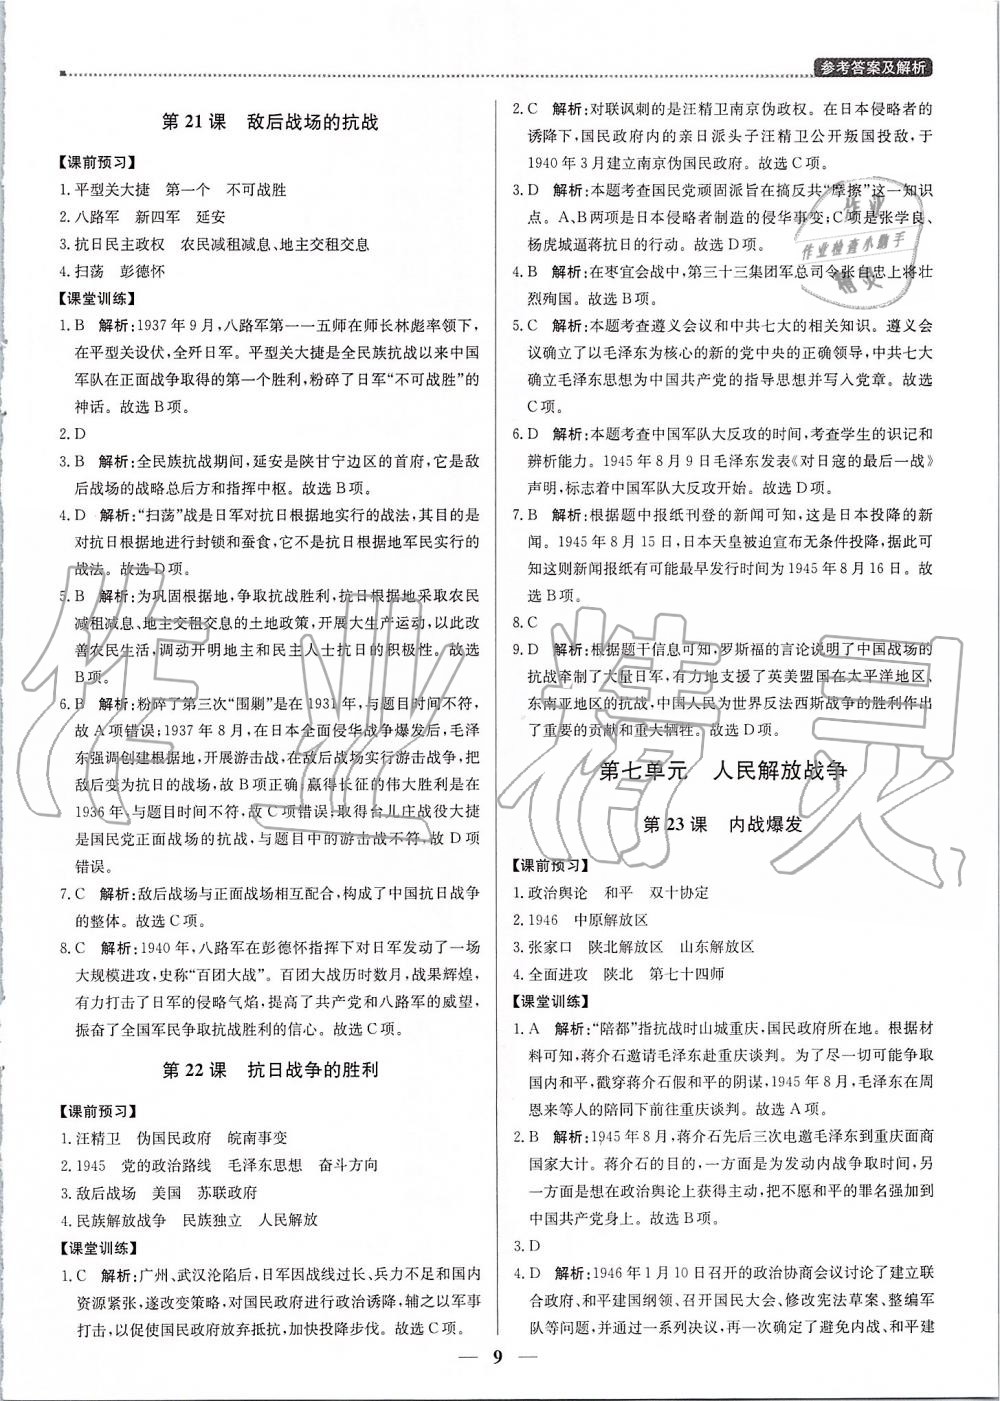 参考答案及解析
第 21 课　敌后战场的抗战
【课前预习】
1. 平型关大捷　第一个　不可战胜
2. 八路军　新四军　延安
3. 抗日民主政权　农民减租减息、地主交租交息
4. 扫荡　彭德怀
【课堂训练】
1. B　解析:1937 年 9 月,八路军第一一五师在师长林彪率领下,
在平型关设伏,全歼日军。平型关大捷是全民族抗战以来中国
军队在正面战争取得的第一个胜利,粉碎了日军“不可战胜”的
神话。故选 B 项。
2. D
3. B　解析:全民族抗战期间,延安是陕甘宁边区的首府,它是敌
后战场的战略总后方和指挥中枢。故选 B 项。
4. D　解析:“扫荡”战是日军对抗日根据地实行的战法,其目的是
对抗日根据地进行封锁和蚕食,它不是抗日根据地军民实行的
战法。故选 D 项。
5. B　解析:为巩固根据地,争取抗战胜利,抗日根据地采取农民
减租减息、地主交租交息的土地政策,开展大生产运动,以此改
善农民生活,调动开明地主和民主人士抗日的积极性。故选
B 项。
6. B　解析:粉碎了第三次“围剿”是在 1931 年,与题目时间不符,
故 A 项错误;1937 年 8 月,在日本全面侵华战争爆发后,毛泽
东强调创建根据地,开展游击战,在敌后战场实行游击战争,把
敌后变为抗日的战场,故 B 项正确;赢得长征的伟大胜利是在
1936 年,与题目时间不符,故 C 项错误;取得台儿庄战役大捷
是国民党正面战场的抗战,与题目中的游击战不符,故 D 项
错误。
7. C　解析:敌后战场与正面战场相互配合,构成了中国抗日战争
的整体。故选 C 项。
8. C　解析:1940 年,八路军在彭德怀指挥下对日军发动了一场
大规模进攻,史称“百团大战”。百团大战历时数月,战果辉煌,
有力打击了日军的侵略气焰,提高了共产党和八路军的威望,
振奋了全国军民争取抗战胜利的信心。故选 C 项。
第 22 课　抗日战争的胜利
【课前预习】
1. 汪精卫　伪国民政府　皖南事变
2. 1945　党的政治路线　毛泽东思想　奋斗方向
3. 敌后战场　美国　苏联政府
4. 民族解放战争　民族独立　人民解放
【课堂训练】
1. C　解析:广州、武汉沦陷后,日军因战线过长、兵力不足和国内
资源紧张,遂改变策略,对国民政府进行政治诱降,辅之以军事
打击,以促使国民政府放弃抵抗,加快投降步伐。故选 C 项。
2. C　解析:对联讽刺的是汪精卫南京伪政权。在日本侵略者的
诱降下,国民政府内的亲日派头子汪精卫公开叛国投敌,于
1940 年 3 月建立南京伪国民政府。故选 C 项。
3. D　解析:本题考查国民党顽固派旨在搞反共“摩擦”这一知识
点。A、B 两项是日本侵略者制造的侵华事变;C 项是张学良、
杨虎城逼蒋抗日的行动。故选 D 项。
4. B　解析:在枣宜会战中,第三十三集团军总司令张自忠上将壮
烈殉国。故选 B 项。
5. C　解析:本题考查遵义会议和中共七大的相关知识。遵义会
议确立了以毛泽东为核心的新的党中央的正确领导,中共七大
确立毛泽东思想为中国共产党的指导思想并写入党章。故选
C 项。
6. D　解析:本题考查中国军队大反攻的时间,考查学生的识记和
辨析能力。1945 年 8 月 9 日毛泽东发表《对日寇的最后一战》
声明,标志着中国军队大反攻开始。故选 D 项。
7. B　解析:根据题中报纸刊登的新闻可知,这是日本投降的新
闻。1945 年 8 月 15 日,日本天皇被迫宣布无条件投降,据此可
知这则新闻报纸有可能最早发行时间为 1945 年 8 月 16 日。故
选 B 项。
8. C
9. D　解析:根据题干信息可知,罗斯福的言论说明了中国战场的
抗战牵制了大量日军,有力地支援了英美盟国在太平洋地区、
东南亚地区的抗战,中国人民为世界反法西斯战争的胜利作出
了重要的贡献和重大牺牲。故选 D 项。
第七单元　人民解放战争
第 23 课　内战爆发
【课前预习】
1. 政治舆论　和平　双十协定
2. 1946　中原解放区
3. 张家口　陕北解放区　山东解放区
4. 全面进攻　陕北　第七十四师
【课堂训练】
1. A　解析:“陪都”指抗战时山城重庆,国民政府所在地。根据材
料可知,蒋介石邀请毛泽东赴重庆谈判。为了尽一切可能争取
国内和平,戳穿蒋介石假和平的阴谋,1945 年 8 月,毛泽东在周
恩来等人的陪同下前往重庆谈判。故选 A 项。
2. B　解析:1945 年 8 月,蒋介石先后三次电邀毛泽东到重庆面商
国家大计。蒋介石的目的一方面是为发动内战争取时间,另
一方面是想在政治舆论上获得主动,把不愿和平的罪名强加到
中国共产党身上。故选 B 项。
3. D
4. D　解析:1946 年 1 月 10 日召开的政治协商会议讨论了建立联
合政府、和平建国纲领、召开国民大会、修改宪法草案、整编军
队等问题,并通过一系列决议,再一次确定了避免内战、和平建
9
作业
作业检查小助手
精灵
作业精灵